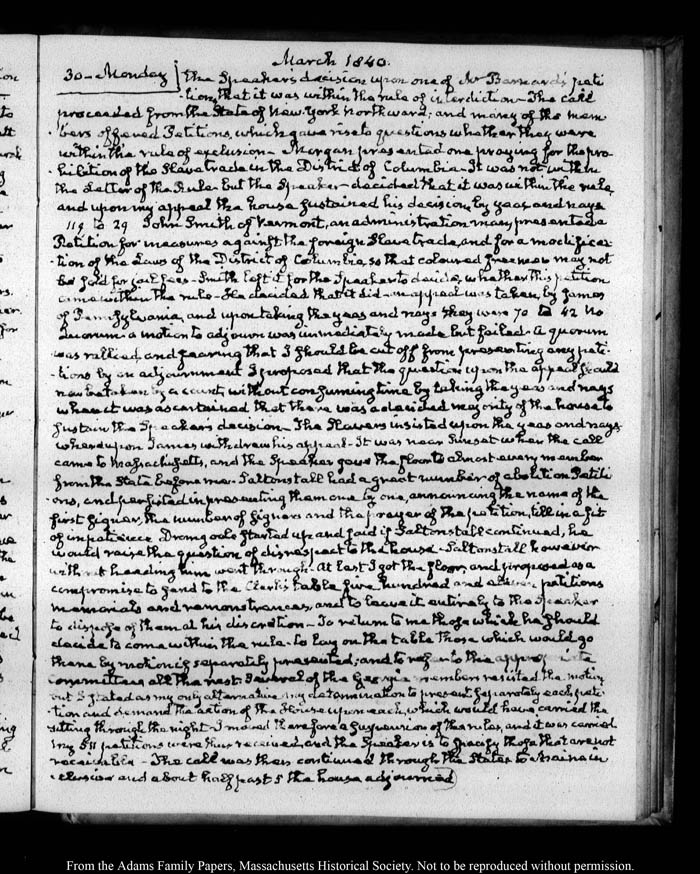 March 1840.
30 - Monday
the Speaker's decision upon one of Mr Barnard's peti
tions, that it was within the rule of interdiction - The call
proceeded from the State of New-York Northward; and many of the mem
bers offered Petitions, which gave rise to questions whether they were
within the rule of exclusion - Morgan presented one praying for the pro
hibition of the Slave trade in the District of Columbia - It was not within
the Letter of the Rule - but the Speaker decided that it was within the rule,
and upon my appeal the house sustained his decision, by yeas and nays
119 to 29 John Smith of Vermont, an administration man, presented a
Petition for measures against the foreign Slave trade, and for a modifica-
tion of the Laws of the District of Columbia, so that coloured freemen may not
be sold for jail fees - Smith left it for the Speaker to decide, whether this petition
came within the rule - He decided that it did - an appeal was taken, by James
of Pennsylvania, and upon taking the yeas and nays they were 70 to 42 No
Quorum - a motion to adjourn was immediately made but failed. A quorum
was rallied, and fearing that I should be cut off from presenting any peti-
tions by an adjournment I proposed that the question upon the appeal should
now be taken by a count, without consuming time by taking the yeas and nays
when it was ascertained that there was a decided majority of the house to
sustain the Speaker's decision - The Slavers insisted upon the yeas and nays
whereupon James withdrew his appeal - It was near Sunset when the call
came to Massachusetts, and the Speaker gave the floor to almost every member
from the State before me. Saltonstall had a great number of abolition Petiti-
ons, and persisted in presenting them one by one, announcing the name of the
first signer, the number of signers and the prayer of the petition, till in a fit
of impatience Dromgoole started up and said if Saltonstall continued, he
would raise the question of disrespect to the house - Saltonstall however
without heeding him went through - At last I got the floor, and proposed as a
compromise to send to the Clerk's table five hundred and eleven petitions
memorials and remonstrances, and to leave it entirely to the Speaker
to dispose of them at his discretion - To return to me those which he should
decide to come within the rule - to lay on the table those which would go
there by motion if separately presented; and to refer to the appropriate
Committees all the rest. Several of the Georgia members resisted the motion
but I stated as my only alternative my determination to present separately each peti-
tion and demand the action of the House upon each, which would have carried the
sitting through the night I moved therefore a suspension of the rules, and it was carried
my 511 petitions were thus received, and the Speaker is to specify those that are not
receivable - The call was then continued through the States to Maine in
clusive and about half past 5 the house adjourned
From the Adams Family Papers, Massachusetts Historical Society. Not to be reproduced without permission.